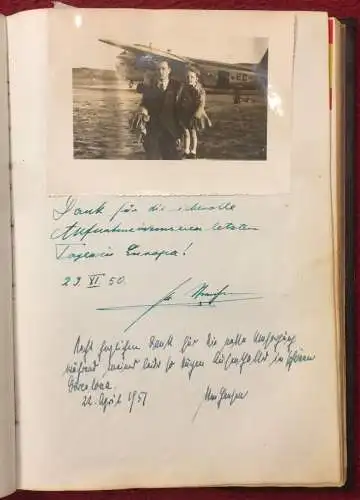 EC-
Dank für die
Aufnahme in unseren letzten
Tagen in Europa!
23. VI. 50.
Recht herzlichen Dank für die nette
während meines leider so kurzen Aufenthalts in schönen
Barcelona.
22. April 1951